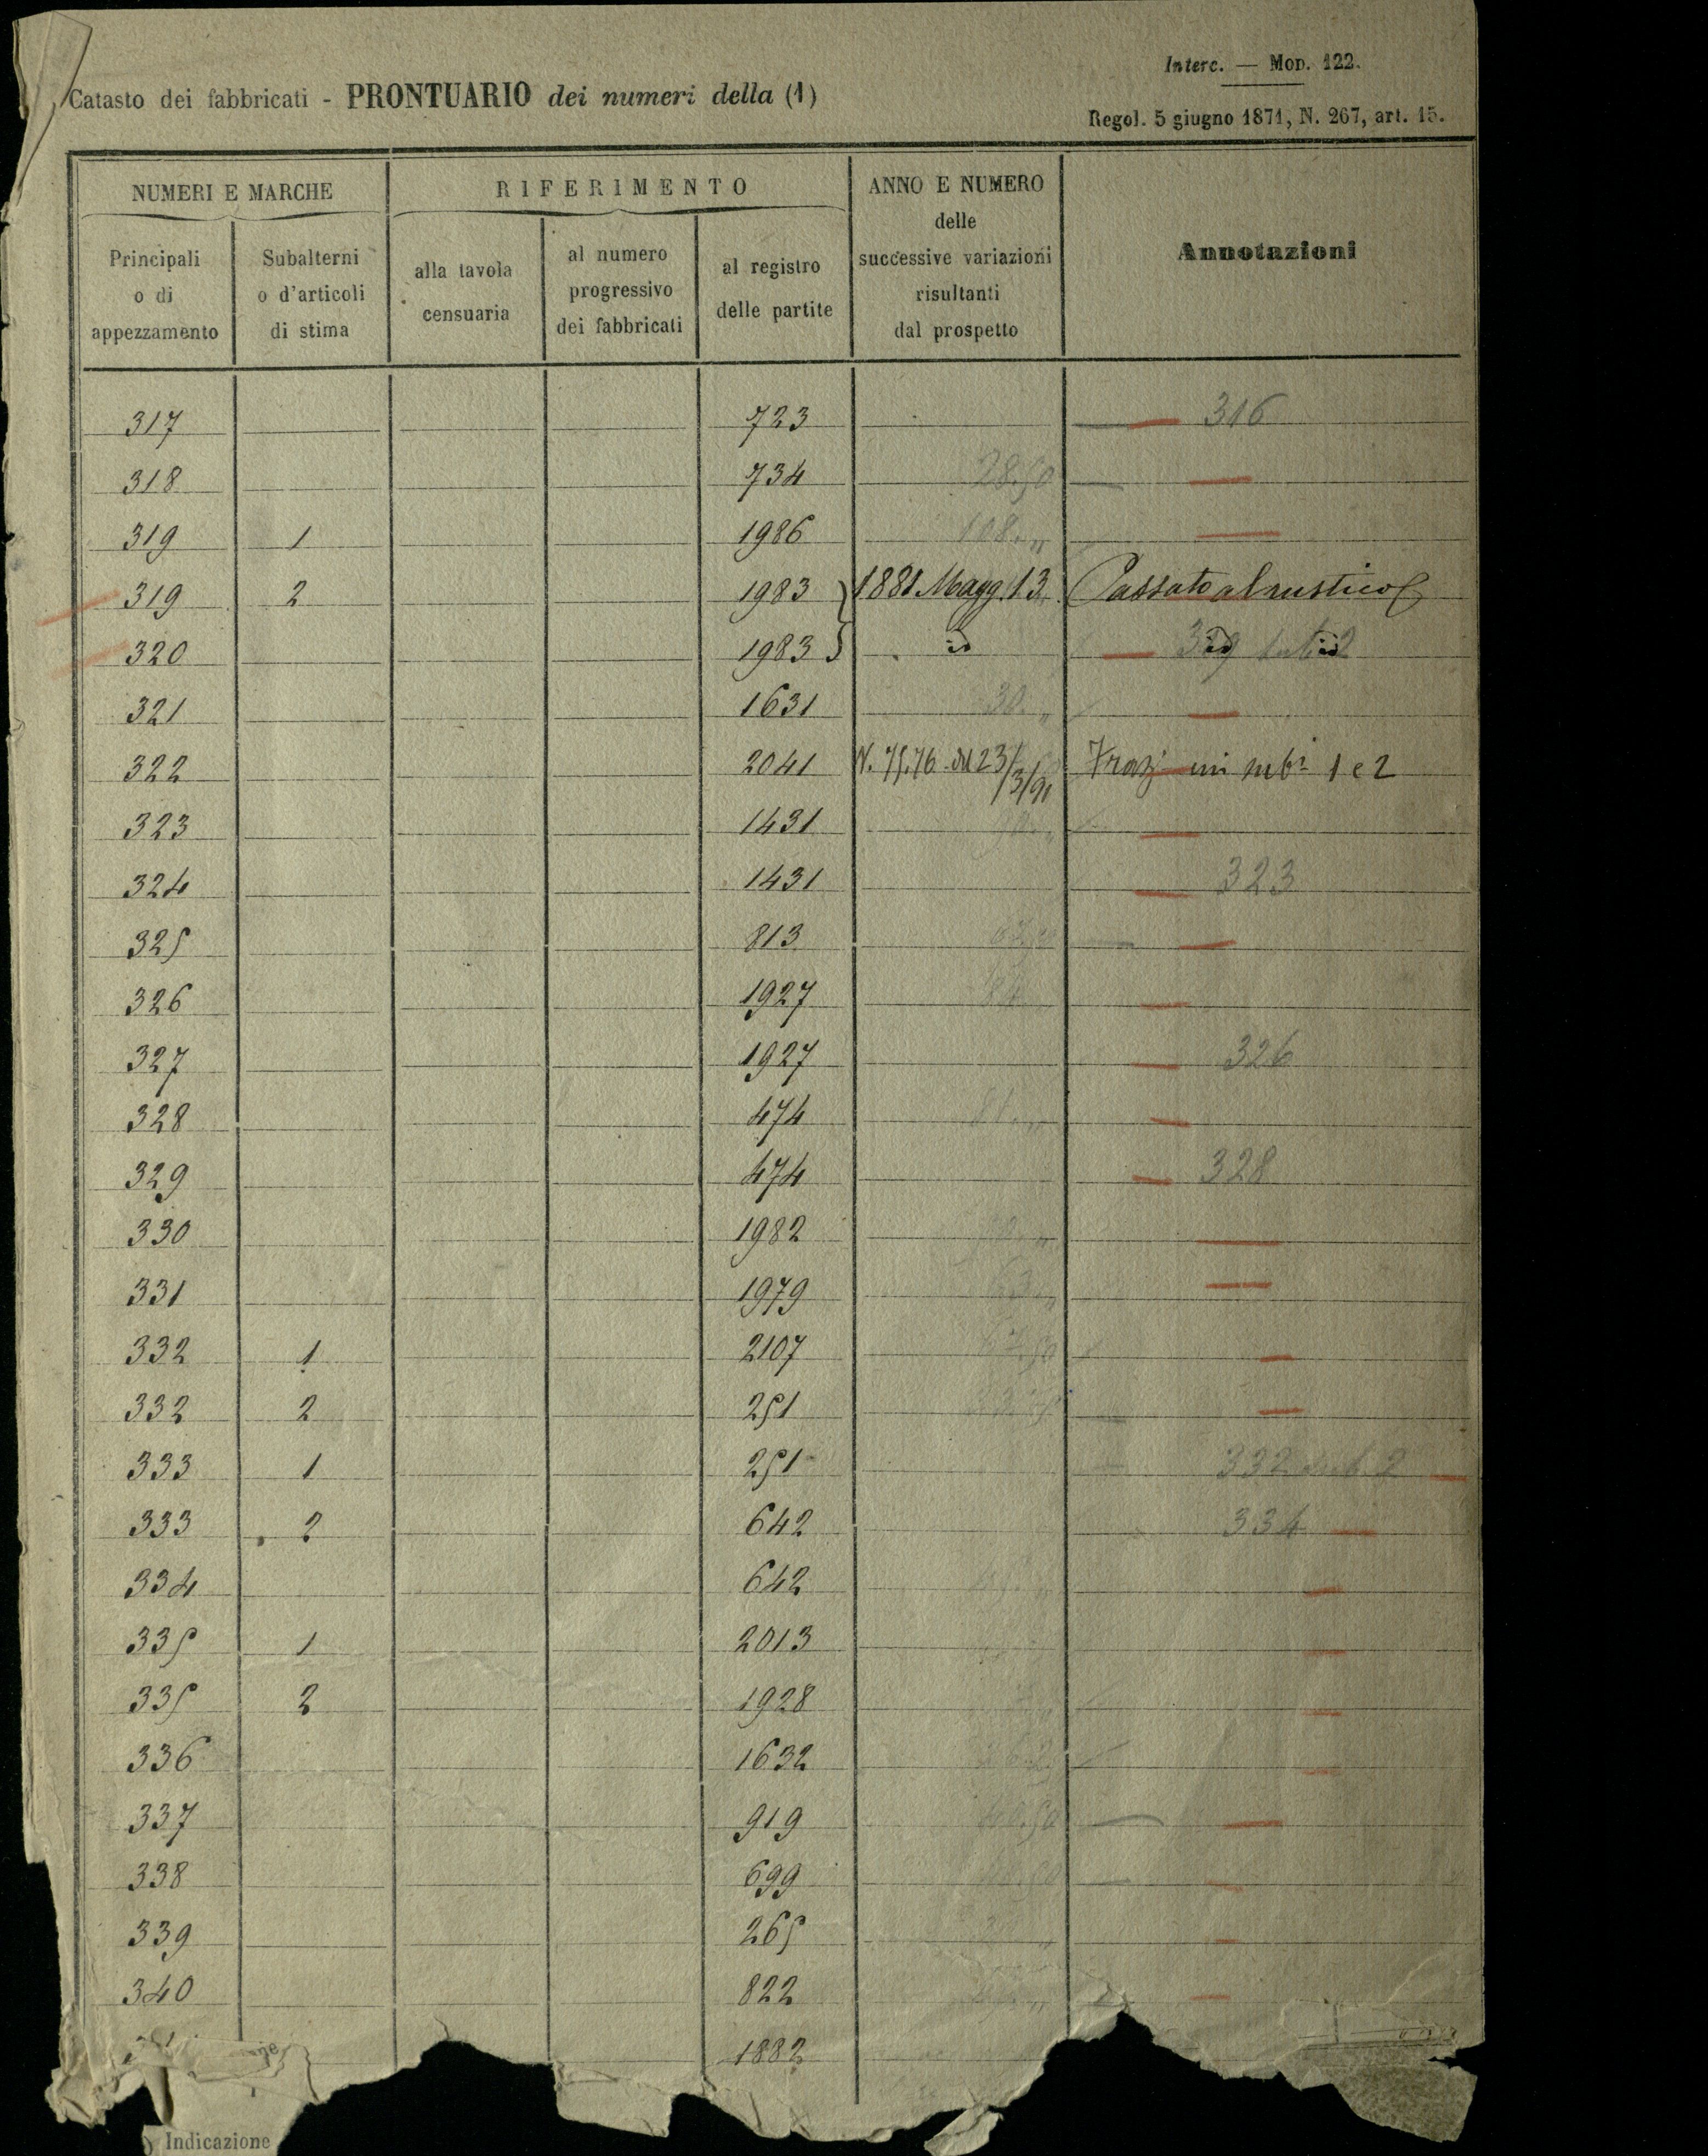 Interc. — Mod. 122.
Catasto dei fabbricati - PRONTUARIO dei numeri della (1)
Regol. 5 giugno 1871, N. 267, art. 15.
NUMERI E MARCHE
RIFERIMENTO
ANNO E NUMERO
delle
successive variazioni
risultanti
dal prospetto
Annotazioni
Principali
o di
appezzamento
Subalterni
o d'articoli
di stima
alla tavola
censuaria
al numero
progressivo
dei fabbricati
al registro
delle partite
317 723 316
318 734 28.50
319 1 1986 108. "
319 2 1983 1881 Magg. 13 Passato al rustico
320 1983 id id id 319 sub. 2
321 1631 30. "
322 2041 N. 75.76 del 23/3/91 Fraz. in subi 1 e 2
323 1431
324 1431 323
325 813
326 1927 84
327 1927 326
328 474 81. "
329 474 328
330 1982
331 1979 63. "
332 1 2107
332 2 251
333 1 251 332 sub. 2
333 2 642 334
334 642
335 1 2013
335 2 1928
336 1632
337 919
338 699
339 265
340 822
1882
Indicazione